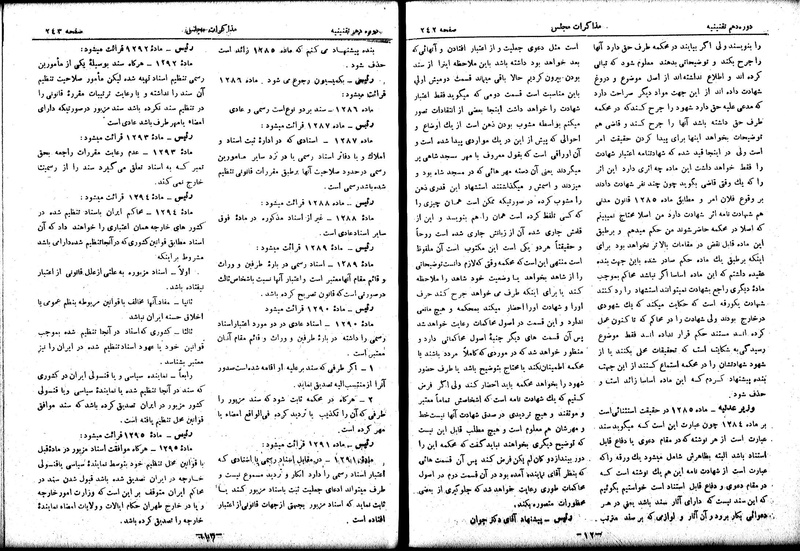 دوره دهم تقنینیه مذاکرات مجلس صفحه ۲۴۲
را بنویسند ولی اگر بیایند در محکمه طرف حق دارد آنها
را جرح بکند و توضیحاتی بدهند معلوم شود که تبانی
کرده اند و اطلاع نداشته‌اند از اصل موضوع و دروغ
شهادت داده اند از این جهت مواد دیگر صراحت دارد
که مدعی علیه حق دارد شهود را جرح کند در محکمه
طرف حق داشته باشد آنها را جرح کند و قاضی هم
توضیحات بخواهد اینها برای پیدا کردن حقیقت امر
است ولی در اینجا قید شده که شهادتنامه اعتبار شهادت
را فقط خواهد داشت این ماده چه اثری دارد این اثر
را که یك وقت قاضی بگوید چون چند نفر شهادت دادند
بر وقوع فلان امر و مطابق ماده ۱۲۸۵ قانون مدنی
هم شهادت نامه اثر شهادت دارد من اصلا محتاج نمیبینم
که اصلا در محکمه حاضر شوند من حکم میدهم و بطریق
این ماده قابل نقض در مقامات بالاتر نخواهد بود برای
اینکه برطبق یك ماده حکم صادر شده باین جهت بنده
عقیده داشتم که این ماده اساسا اگر نباشد محاکم بموجب
مادۀ دیگری راجع بشهادت نمیتوانند استشهاد را رد کنند
شهادت یکورقه است که حکایت میکند که یك شهودی
درخارج بودند ولی شهادت را در محاکم که تا کنون عمل
کرده اند مستند حکم قرار نداده اند فقط موضوع
رسیدگی به شکایت است که تحقیقات محلی بکنند یا از
شهود شهادتشان را در محکمه استماع کنند از این جهت
بنده پیشنهاد کردم که این ماده اساسا زائد است و
وزیر عدلیه - ماده ۱۲۸۵ در حقیقت استثنائی است
بر ماده ۱۲۸۴ چون عبارت این است که میگوید سند
عبارت است از هر نوشته که در مقام دعوی یا دفاع قابل
استناد باشد البته بظاهرش شامل میشود یك ورقه را که
عبارت است از شهادت نامه این هم یك نوشته است که
در مقام دعوی و دفاع قابل استناد است خواستیم بگوئیم
که این سند نیست که دارای آثار سند باشد یعنی در هر
دعوائی بکار برود و آن آثار و لوازمی که بر سند مترتب
است مثل دعوی جعلیت و از اعتبار افتادن و آنهائی که
بعد خواهد بود داشته باشد باین ملاحظه اینرا از سند
بودن بیرون کردیم حالا باقی میماند قسمت دومیش اولی
باین مناسبت است قسمت دومی که میگوید فقط اعتبار
شهادت را خواهد داشت اینجا بعضی از انتقادات تصور
میکنم بواسطه مشوب بودن ذهن است از یك اوضاع و
احوالی که پیش از این در یك مواردی پیدا شده است و
آن اوراقی است که بقول معروف با مهر مسجد شاهی پر
میکردند یعنی آن دسته مهر هائی که در مسجد شاه بود و
میزدند و اسمش را میگذاشتند استشهاد این قدری ذهن
را مشوب کرده در صورتیکه ممکن است همان چیزی را
که کسی تلفظ کرده است همان را هم بنویسد و این از
قلمش جاری شده آن از زبانش جاری شده است روحاً
و حقیقتاً هردو یکی است این مکتوب است آن ملفوظ
است منتهی این است که محکمه وقتی که لازم دانست توضیحاتی
را از شاهد بخواهد یا وضعیت خود شاهد را ملاحظه
کنند یا برای اینکه طرف می خواهد جرح کند حرف
اورا و شهادت اورا احضار میکند بمحکمه و هیچ مانعی
ندارد و این قسمت در اصول محاکمات رعایت خواهد شد
پس آن قسمت های دیگر جنبۀ اصول محاکماتی دارد و
منظور خواهد شد که در موردی که کاملاً مردد باشند یا
محکمه اطمینان نکند یا محتاج بتوضیح باشد یا طرف حضور
شهود را بخواهد محکمه باید احضار کند ولی اگر فرض
کنیم که یك شهادت نامه است که اشخاص تماماً معتبر
و موثقند و هیچ تردیدی در صدق شهادت آنها نیست خط
و مهرشان هم معلوم است و هیچ مطلب قابل این نیست
که توضیح دیگری بخواهند نباید گفت که محکمه این را
دور بیندازد و کان لم یکن فرض کند پس آن قسمت هائی
که بنظر آقای نماینده آمده بود در آن قسمت دوم در اصول
محاکمات طوری رعایت خواهد شد که جلوگیری از بعضی
محظورات متصوره بکند.
رئیس - پیشنهاد آقای دکتر جوان
دوره دهم تقنینیه مذاکرات مجلس صفحه ۲۴۳
بنده پیشنهاد می کنم که ماده ۱۲۸۵ زائد است
حذف شود .
رئیس - بکمیسیون رجوع می شود . ماده ۱۲۸۶
قرائت میشود:
ماده ۱۲۸۶ - سند بر دو نوع است رسمی و عادی
رئیس - ماده ۱۲۸۷ قرائت میشود:
ماده ۱۲۸۷ - اسنادی که در ادارۀ ثبت اسناد و
املاك و یا دفاتر اسناد رسمی یا در نزد سایر مأمورین
رسمی در حدود صلاحیت آنها برطبق مقررات قانونی تنظیم
شده باشد رسمی است .
رئیس - ماده ۱۲۸۸ قرائت میشود:
مادۀ ۱۲۸۸ - غیر از اسناد مذکوره در مادۀ فوق
سایر اسناد عادی است .
رئیس - مادۀ ۱۲۸۹ قرائت میشود:
مادۀ ۱۲۸۹ - اسناد رسمی در بارۀ طرفین و وراث
و قائم مقام آنها معتبر است و اعتبار آنها نسبت باشخاص ثالث
در صورتی است که قانون تصریح کرده باشد .
رئیس - مادۀ ۱۲۹۰ قرائت میشود:
مادۀ ۱۲۹۰ - اسناد عادی در دو مورد اعتبار اسناد
رسمی را داشته در بارۀ طرفین و وراث و قائم مقام آنان
معتبر است
۱ - اگر طرفی که سند بر علیه او اقامه شده است صدور
آنرا از منتسب الیه تصدیق نماید .
۲ - هرگاه در محکمه ثابت شود که سند مزبور را
طرفی که آن را تکذیب یا تردید کرده فی‌الواقع امضاء یا
مهر کرده است
رئیس - مادۀ ۱۲۹۱ قرائت میشود:
مادۀ ۱۲۹۱ - در مقابل اسناد رسمی یا اسنادی که
اعتبار اسناد رسمی را دارد انکار و تردید مسموع نیست و
طرف میتواند ادعای جعلیت ثبت باسناد مزبور کند یا
ثابت نماید که اسناد مزبور بجهتی از جهات قانونی از اعتبار
افتاده است
رئیس - مادۀ ۱۲۹۲ قرائت میشود:
مادۀ ۱۲۹۲ - هرگاه سند بوسیلۀ یکی از مأمورین
رسمی تنظیم اسناد تهیه شده لیکن مأمور صلاحیت تنظیم
آن سند را نداشته و یا رعایت ترتیبات مقررۀ قانونی را
در تنظیم سند نکرده باشد سند مزبور در صورتیکه دارای
امضاء یا مهر طرف باشد عادی است.
رئیس - ماده ۱۲۹۳ قرائت میشود:
ماده ۱۲۹۳ - عدم رعایت مقررات راجعه بحق
تمبر که به اسناد تعلق می‌گیرد سند را از رسمیت
خارج نمی کند.
رئیس - مادۀ ۱۲۹۴ قرائت میشود:
مادۀ ۱۲۹۴ - محاکم ایران باسناد تنظیم شده در
کشور های خارجه همان اعتباری را خواهند داد که آن
اسناد مطابق قوانین کشوری که در آنجا تنظیم شده دارا می باشد
مشروط بر اینکه
اولاً - اسناد مزبوره به علتی از علل قانونی از اعتبار
نیفتاده باشد.
ثانیا - مفاد آنها مخالف با قوانین مربوطه بنظم عمومی یا
اخلاق حسنه ایران نباشد
ثالثا - کشوری که اسناد در آنجا تنظیم شده بموجب
قوانین خود یا عهود اسناد تنظیم شده در ایران را نیز
معتبر بشناسد .
رابعا - نماینده سیاسی و یا قنسولی ایران در کشوری
که سند در آنجا تنظیم شده یا نماینده سیاسی و یا قنسولی
کشور مزبور در ایران تصدیق کرده باشد که سند موافق
قوانین محل تنظیم یافته است.
رئیس - مادۀ ۱۲۹۵ قرائت میشود:
مادۀ ۱۲۹۵ - هرگاه موافقت اسناد مزبور در مادۀ قبل
با قوانین محل تنظیم خود بتوسط نمایندۀ سیاسی یا قنسولی
خارجه در ایران تصدیق شده باشد قبول شدن سند در
محاکم ایران متوقف بر این است که وزارت امور خارجه
و یا در خارج طهران حکام ایالات و ولایات امضاء نمایندۀ
خارجه را تصدیق کرده باشد.